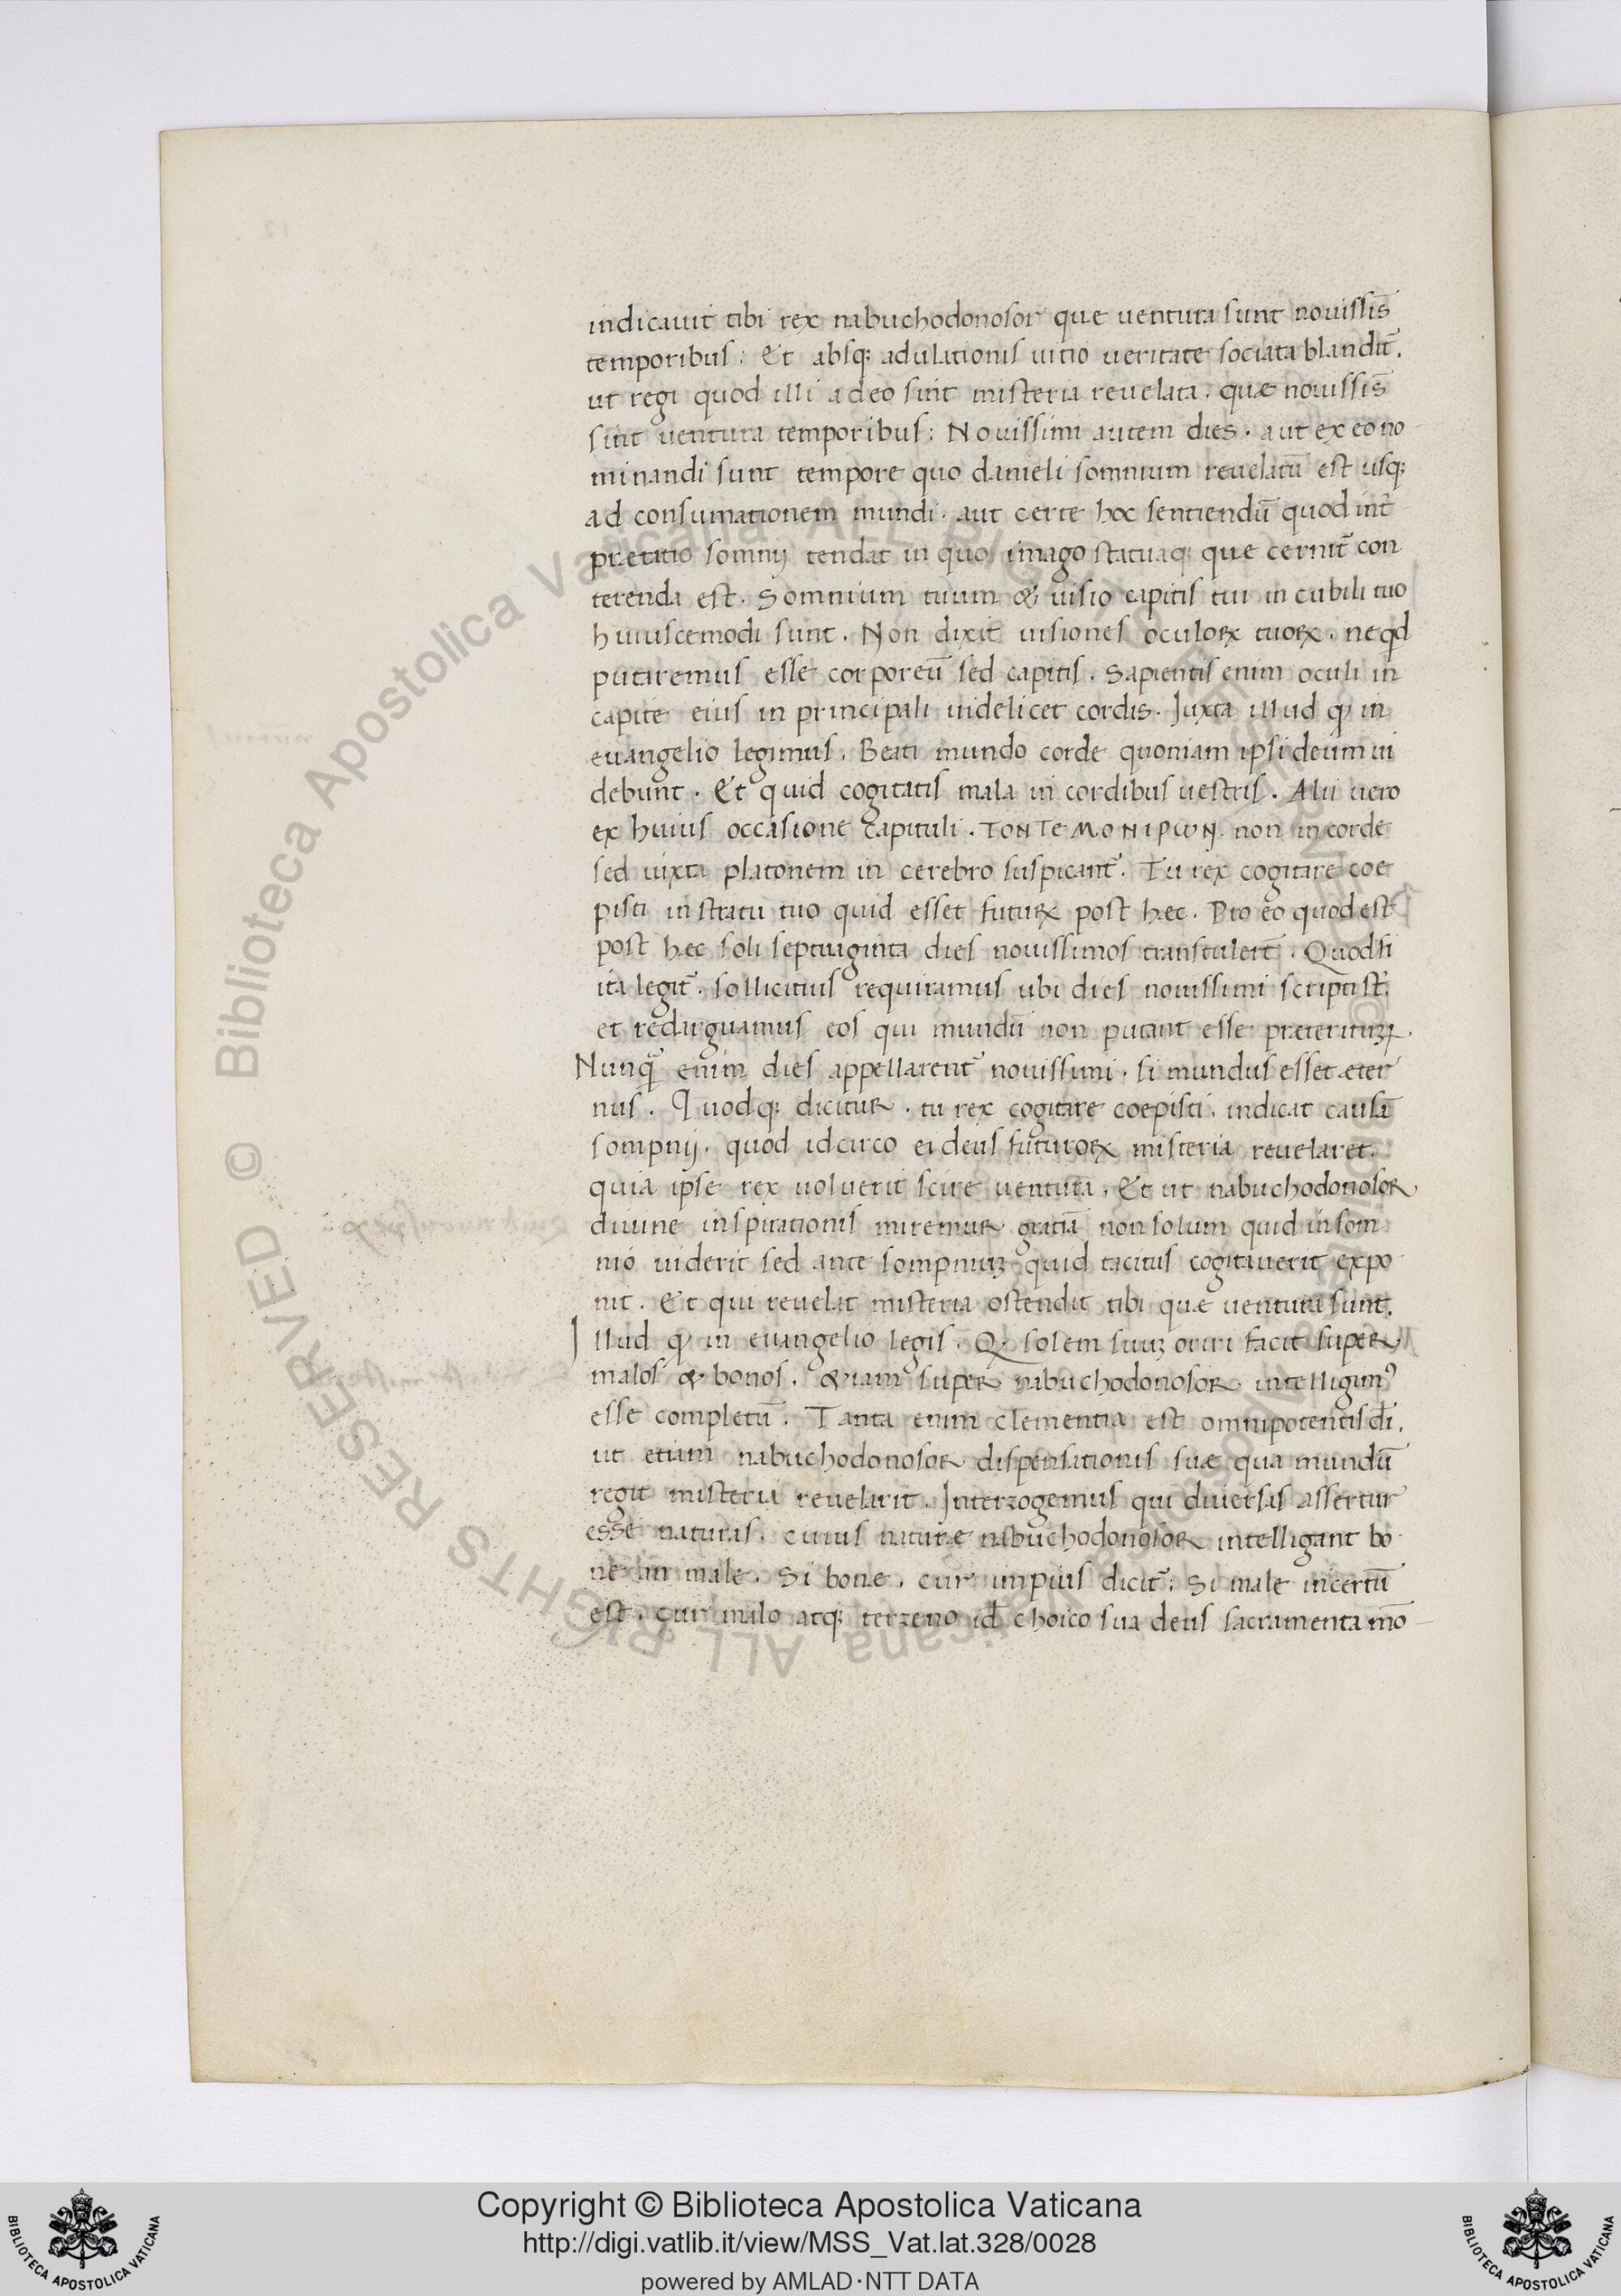 indicauit tibi rex nabuchodonosor que uentura sunt nouissis̄
temporibus: Et absq; adulationis uitio ueritate sociata blandit̄.
ut regi quod illi adeo sint misteria reuelata. quæ nouissis̄
sint uentura temporibus: Nouissimi autem dies. aut ex eo no
minandi sunt tempore quo danieli somnium reuelatū est usq;
ad consumationem mundi. aut certe hoc sentiendū quod int̄
prætatio somnij tendat in quo imago statuaq; que cernit̄ con
terenda est. Somnium tuum & uisio capitis tui in cubili tuo
huiuscemodi sunt. Non dixit uisiones oculoꝝ tuoꝝ. neqd
putaremus esse corporeū sed capitis. Sapientis enim oculi in
capite eius in principali uidelicet cordis. Iuxta illud ꝙ in
euangelio legimus. Beati mundo corde quoniam ipsi deum ui
debunt. Et quid cogitatis mala in cordibus uestris. Alii uero
ex huius occasione capituli. TONTEMONIPωN. non in corde
sed iuxta platonem in cerebro suspicant̄. Tu rex cogitare coe
pisti in stratu tuo quid esset futurꝝ post hęc. Pro eo quod est
post hęc soli septuaginta dies nouissimos transtulert̄. Quod si
ita legit̄. sollicitius requiramus ubi dies nouissimi scripti st̄.
et redarguamus eos qui mundū non putant esse præterituꝝ.
Nunq̄ enim dies appellarent̄ nouissimi. si mundus esset æter
nus. Quodq; dicitur. tu rex cogitare coepisti. indicat causā
sompnij. quod idcirco ei deus futuroꝝ misteria reuelaret.
quia ipse rex uoluerit scire uentura. Et ut nabuchodonosor
diuine inspirationis miremur gratiā non solum quid in som
nio uiderit sed ante sompniuȝ quid tacitus cogitauerit expo
nit. Et qui reuelat misteria ostendit tibi quæ uentura sunt.
Illud ꝙ in euangelio legis. Q. solem suuȝ oriri facit super
malos & bonos. &iam super nabuchodonosor intelligimꝰ
esse completū. Tanta enim clementia est omnipotentis dī.
ut etiam nabuchodonosor dispensationis suæ qua mundū
regit misteria reuelarit. Interrogemus qui diuersas assertur
esse naturas. cuius naturæ nabuchodonosor intelligant bo
ne an male. Si bone. cur impius dicit̄. Si male incertū
est. cur malo atq; terreno id ̄ choico sua deus sacramenta mō
Copyright © Biblioteca Apostolica Vaticana
http://digi.vatlib.it/view/MSS_Vat.lat.328/0028
powered by AMLAD·NTT DATA